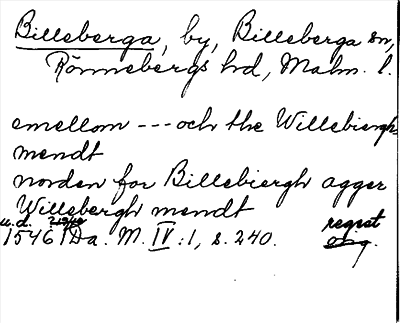 Billeberga, by, Billeberga sn,
Rönnebergs hd, Malm. l.
emellom --- och the Willebiergh
mendt
norden for Billebiergh agger
Willebergh mendt
u.d. regest
1546 Da. M. IV:1, s. 240. orig.